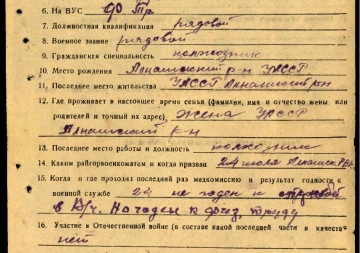 6. На ВУС 90 Тр
7. Должностная квалификация рядовой
8. Военное звание рядовой
9. Гражданская специальность колхозник
10. Место рождения Алнашский р-н УАССР
11. Последнее место жительства УАССР Алнашский р-н
12. Где проживает в настоящее время семья (фамилия, имя и отчество жены или
родителей и точный их адрес) жена УАССР
Алнашский р-н
13. Последнее место работы и должность колхозник
14. Каким райгорвоенкоматом и когда призван 24 июля
15. Когда и где проходил последний раз медкомиссию и результат годности к
военной службе 24 не годен к
в В/ч. На годен к физ. труду
16. Участие в Отечественной войне (в составе какой последней части в качестве
ней